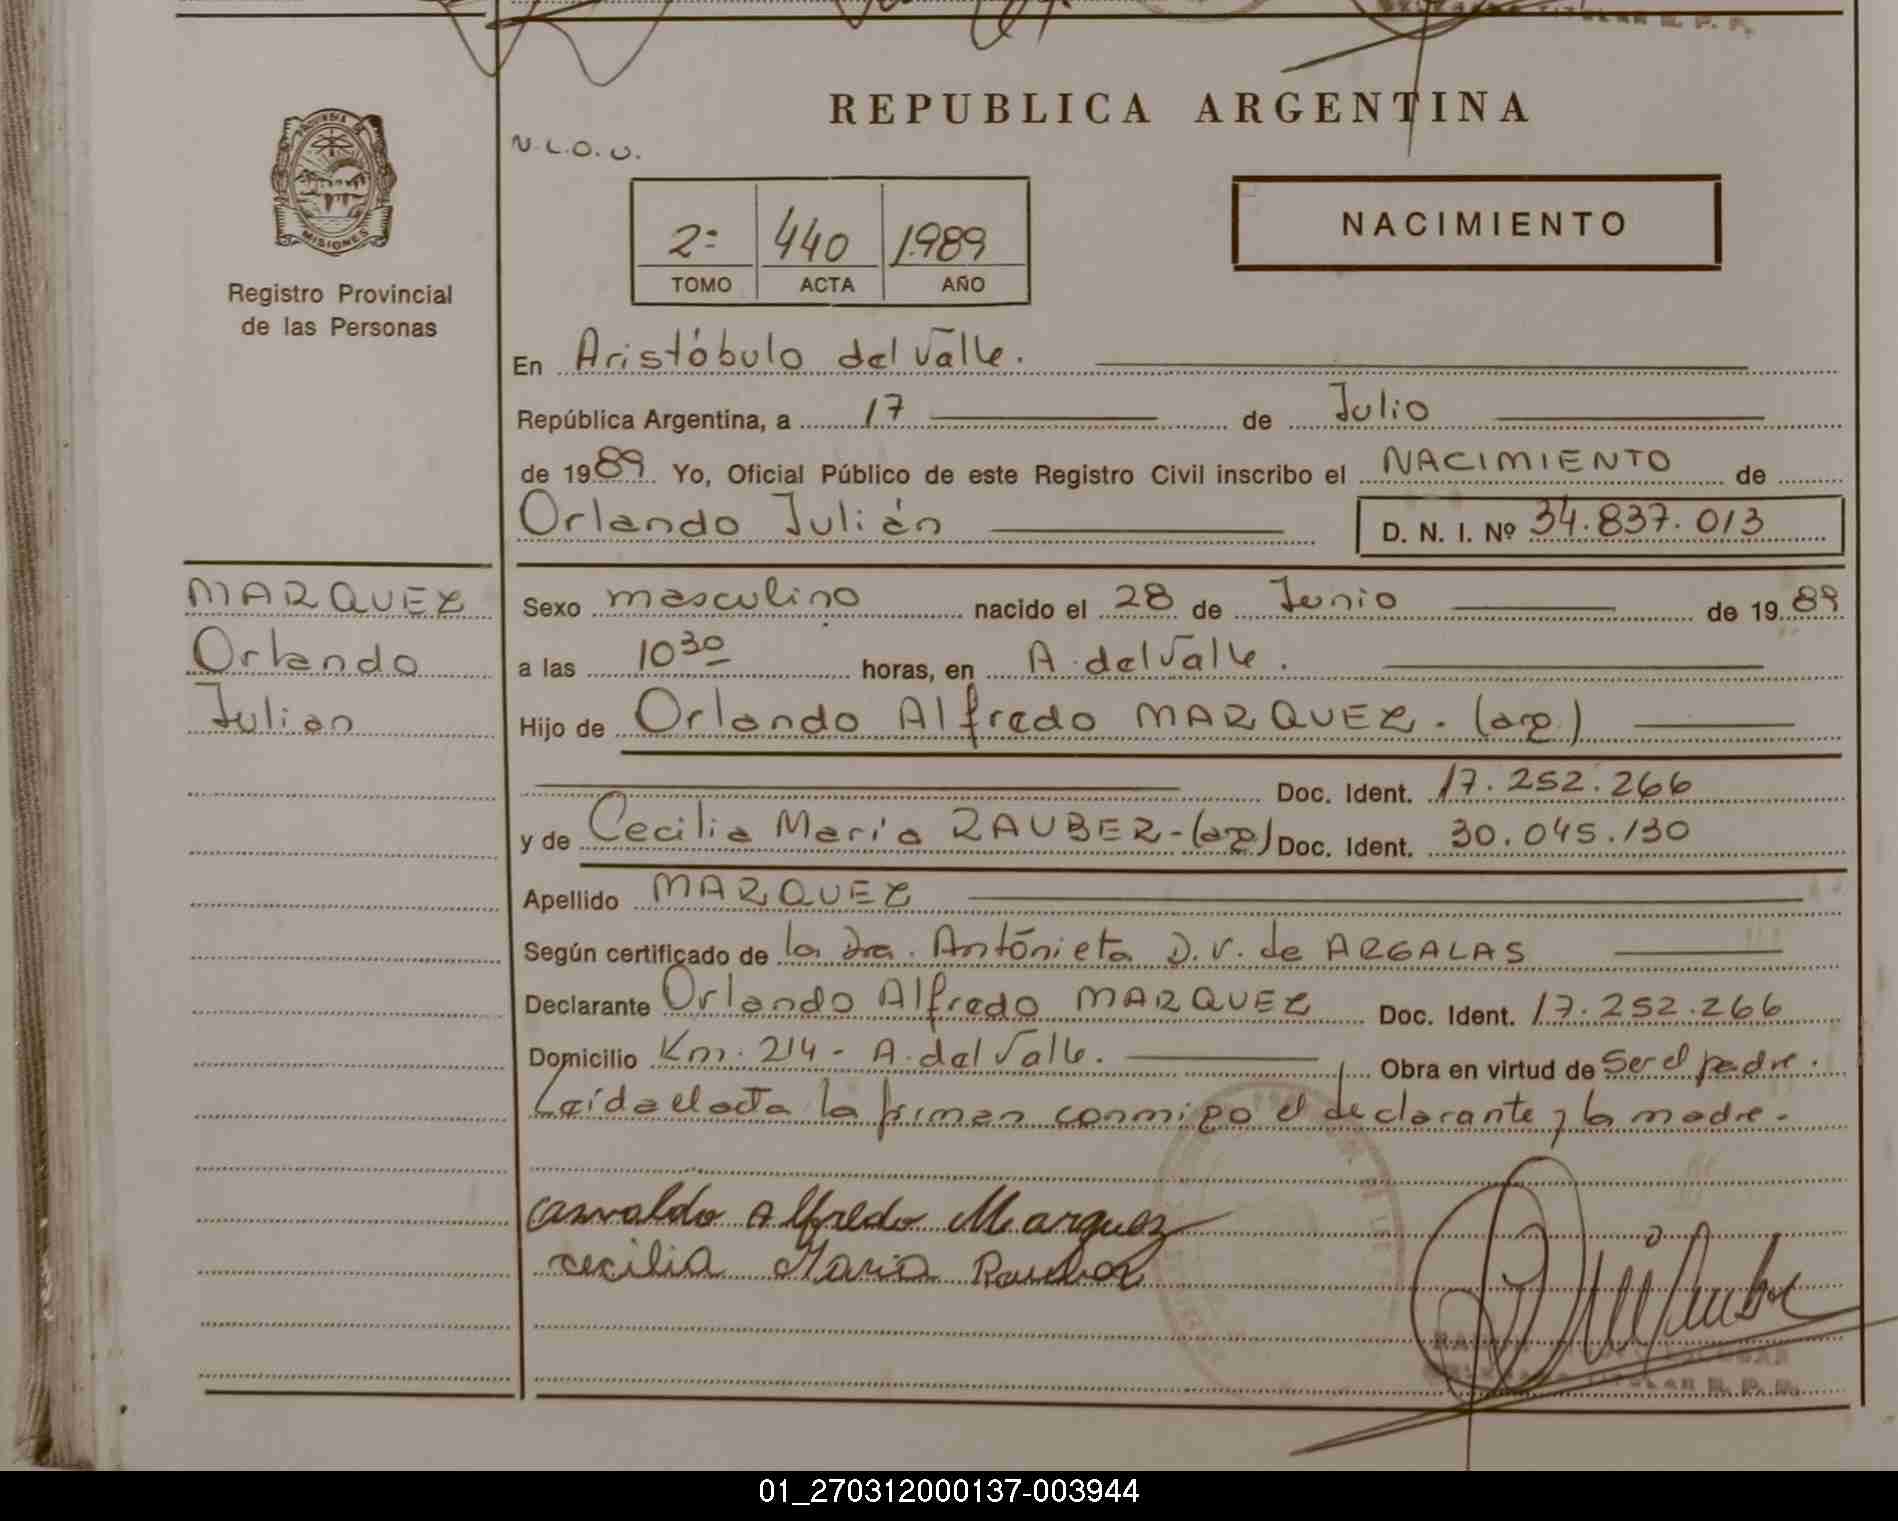 REPUBLICA ARGENTINA
N.L.O.U.
PROVINCIA DE
MISIONES
Registro Provincial
de las Personas
2º 440 1.989
TOMO ACTA AÑO
NACIMIENTO
En Aristóbulo del Valle.
República Argentina, a 17 de Julio
de 1989. Yo, Oficial Público de este Registro Civil inscribo el NACIMIENTO de
Orlando Julián D. N. I. Nº 34.837.013
MARQUEZ
Orlando
Julian
Sexo masculino nacido el 28 de Junio de 1989
a las 10 30 horas, en A. del Valle.
Hijo de Orlando Alfredo MARQUEZ. (arg.)
Doc. Ident. 17.252.266
y de Cecilia María RAUBER-(arg) Doc. Ident. 30.045.130
Apellido MARQUEZ
Según certificado de la Dra. Antonieta D.V. de ARGALAS
Declarante Orlando Alfredo MARQUEZ Doc. Ident. 17.252.266
Domicilio Km. 214 - A. del Valle. Obra en virtud de Ser el padre.
Leída el acta la firman conmigo el declarante y la madre.
Alfredo Marquez
cecilia Maria Rauber
TITULAR R. P. P.
01_270312000137-003944